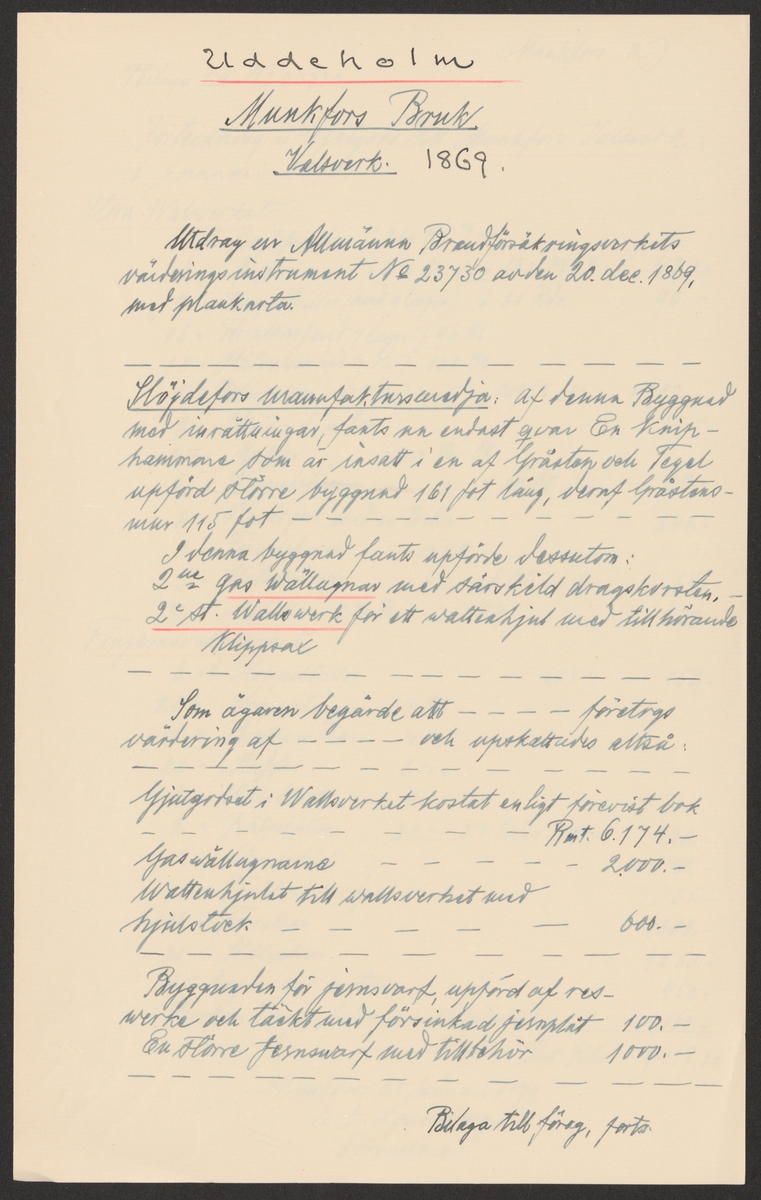 Uddeholm
Munkfors Bruk
Valsverk. 1869.
Utdrag ur Allmänna Brandförsäkringsverkets
värderingsinstrument No 23730 av den 20. dec. 1869,
med plankarta.
Slöjdefors manufaktursmedja: af denna Byggnad
med inrättningar, fants nu endast qvar En Knip-
hammare som är insatt i en af Gråsten och Tegel
upförd större byggnad 161 fot lång, deraf Gråstens-
mur 115 fot — — — — — — — —
I denna byggnad fants upförde dessutom:
2ne Gas Wällugnar med särskild dragskorsten. —
2e st. Wallswerk för ett wattenhjul med tillhörande
Klippsax
Som ägaren begärde att — — — — företogs
värdering af — — — — och upskattades altså:
Gjutgodset i Wallsverket kostat enligt förevist bok
— — — — — — — Rmt. 6.174.—
Gaswällugnarne — — — — — 2.000.—
Wattenhjulet till wallsverket med
hjulstock — — — — — 600.—
Byggnaden för jernsvarf, upförd af res-
werke och täckt med försinkad jernplåt 100.—
En större Jernswarf med tillbehör 1000.—
Bilaga till föreg, forts.